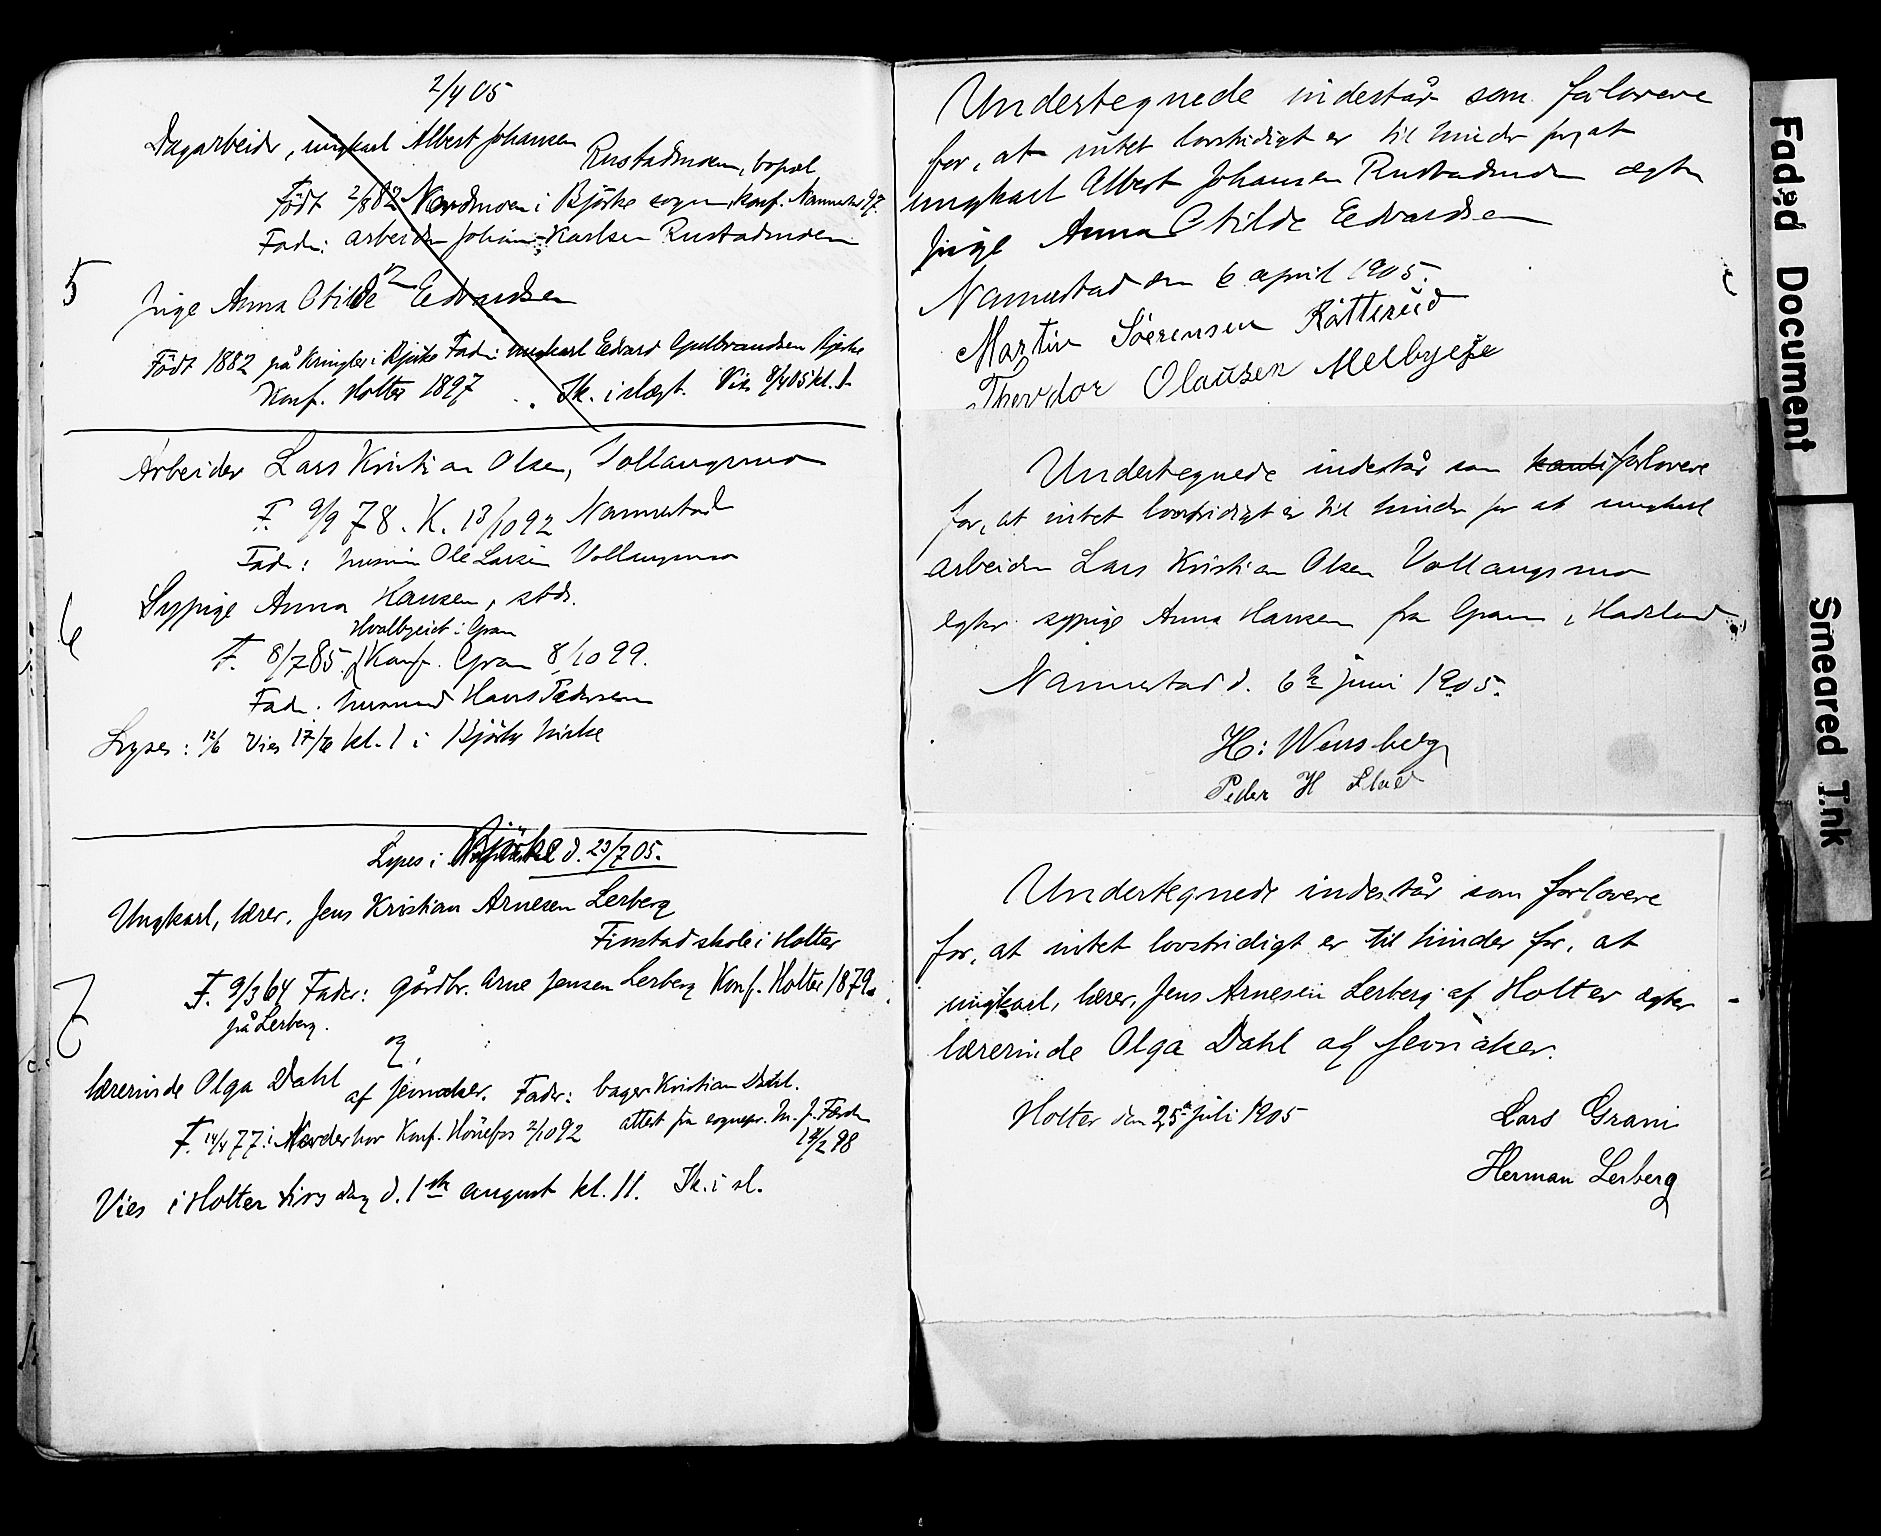 2/4 05
Dagarbeider, ungkarl Albert Johansen
Rustadmoen, bopæl
Födt 2/8 82 Nordmoen i Björke sogn, konf. Nannestad 97.
Fader: arbeider Johan Karlsen Rustadmoen
5
og
Pige Anna Otilde Edvardsen
Födt 1882 på Kringler i Bjärke Fader: ungkarl Edvard Gulbrandsen Bjerke
Konf. Holter 1897 Ik. i slægt. Vies 9/4 05 kl. 1
Arbeider Lars Kristian Olsen, Vollaugsmo
F. 9/9 78. K. 13/10 92 Nannestad
Fader: husmand Ole Larsen Vollaugsmo
6
Sypige Anna Hansen, stds.
Hvalbyeiet i Gran
F. 8/7 85. Konf. Gran 8/10 99.
Fader: husmand Hans Pedersen
Lyses: 12/6 Vies 17/6 kl. 1 i Björke kirke
Lyses i Björke d. 23/7 05.
Ungkarl, lærer, Jens Kristian Arnesen Lerberg
Finstad skole i Holter
7
F. 9/3 64 Fader: gårdbr. Arne Jensen Lerberg Konf. Holter 1879.
på Lerberg.
og
lærerinde Olga Dahl af Jevnaker. Fader: bager Kristian Dahl.
F. 14/4 77 i Norderhov Konf. Hönefos 2/10 92 attest fra sognepr. M. J. Færden
18/2 98
Vies i Holter tirsdag d. 1ste august kl. 11. Ik. i sl.
Undertegnede indestår som forlovere
for, at intet lovstridigt er til hinder for, at
ungkarl Albert Johansen Rustadmoen ægter
pige Anna Otilde Edvardsen
Nannestad den 6 april 1905.
Martin Sørensen Råtterud
Theodor Olausen Melbyeje
Undertegnede indestår som forlovere
for, at intet lovstridigt er til hinder for at ungkarl
arbeider Lars Kristian Olsen Vollaugsmo
ægter sypige Anna Hansen fra Gran i Hadeland.
Nannestad d. 6te juni 1905.
H: Wensberg
Peder H
Undertegnede indestår som forlovere
for, at intet lovstridigt er til hinder for, at
ungkarl, lærer, Jens Arnesen Lerberg af Holter ægter
lærerinde Olga Dahl af Jevnaker.
Holter den 25de juli 1905
Lars Grani
Herman Lerberg
Faded Document
Smeared Ink